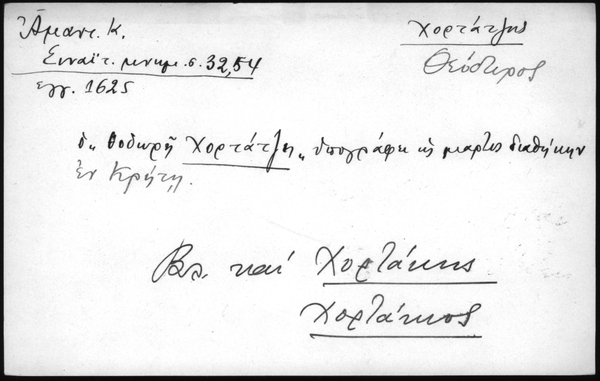 Ἄμαντ. Κ.
Σιναϊτ. μνημ. σ. 32, 54
ἔγγ. 1625
Χορτάτζης
Θεόδωρος
ὁ „Θοδωρῆ Χορτάτζη„ ὑπογράφει ὡς μάρτυς διαθήκην
ἐν Κρήτῃ.
Βλ. καί Χορτάκης
Χορτάκιος